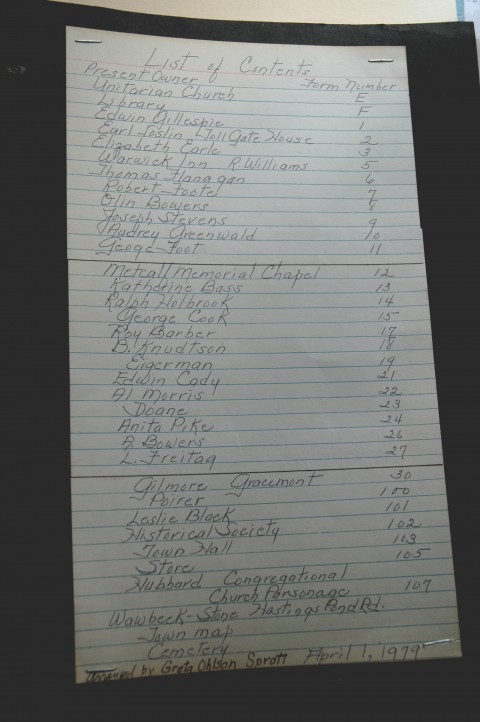 List of Contents
Present Owner Form Number
Unitarian Church E
Library F
Edwin Gillespie 1
Earl Joslin Toll Gate House 2
Elizabeth Earle 3
Warwick Inn R. Williams 5
Thomas Flanagan 6
Robert Foote 7
Olin Bowers 8
Joseph Stevens 9
Audrey Greenwald 10
George Foot 11
Metcalf Memorial Chapel 12
Katherine Bass 13
Ralph Holbrook 14
George Cook 15
Roy Barber 17
B. Knudtson 18
Eigerman 19
Edwin Cady 21
Al Morris 22
Doane 23
Anita Pike 24
A. Bowers 26
L. Freitag 27
Gilmore Graemont 30
Poirer 100
Leslie Black 101
Historical Society 102
Town Hall 103
Store 105
Hubbard Congregational
Church Parsonage 107
Wawbeek-Stone Hastings Pond Rd.
Town map
Cemetery
by Greta Ohlson Sprott April 1, 1979